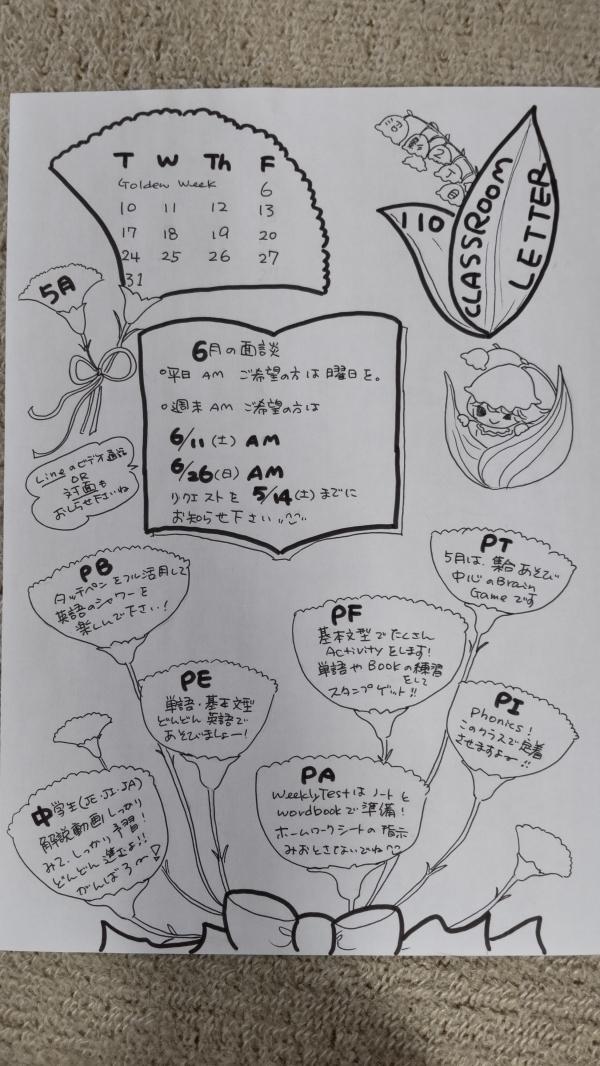 110
CLASSROOM
LETTER
5月
T W Th F
Golden Week 6
10 11 12 13
17 18 19 20
24 25 26 27
31
6月の面談
○平日 AM ご希望の方は曜日を。
○週末 AM ご希望の方は
6/11(土) AM
6/26(日) AM
リクエストを 5/14(土)までに
お知らせ下さい
Lineのビデオ通話
OR
対面も
おしらせ下さいね
PT
5月は、集合あそび
中心のBrain
Gameです
PB
タッチペンをフル活用して
英語のシャワーを
楽しんで下さい!
PF
基本文型でたくさん
Activityをします!
単語やBookの練習
をして
スタンプゲット!!
PE
単語・基本文型
どんどん英語で
あそびましょー!
PI
Phonics!
このクラスで定着
させますよ〜!!
PA
WeeklyTestはノートと
wordbookで準備!
ホームワークシートの指示
みおとさないでね
中学生(JE・JI・JA)
解説動画しっかり
みて、しっかり予習!
どんどん進むよ!!
がんばろ〜!